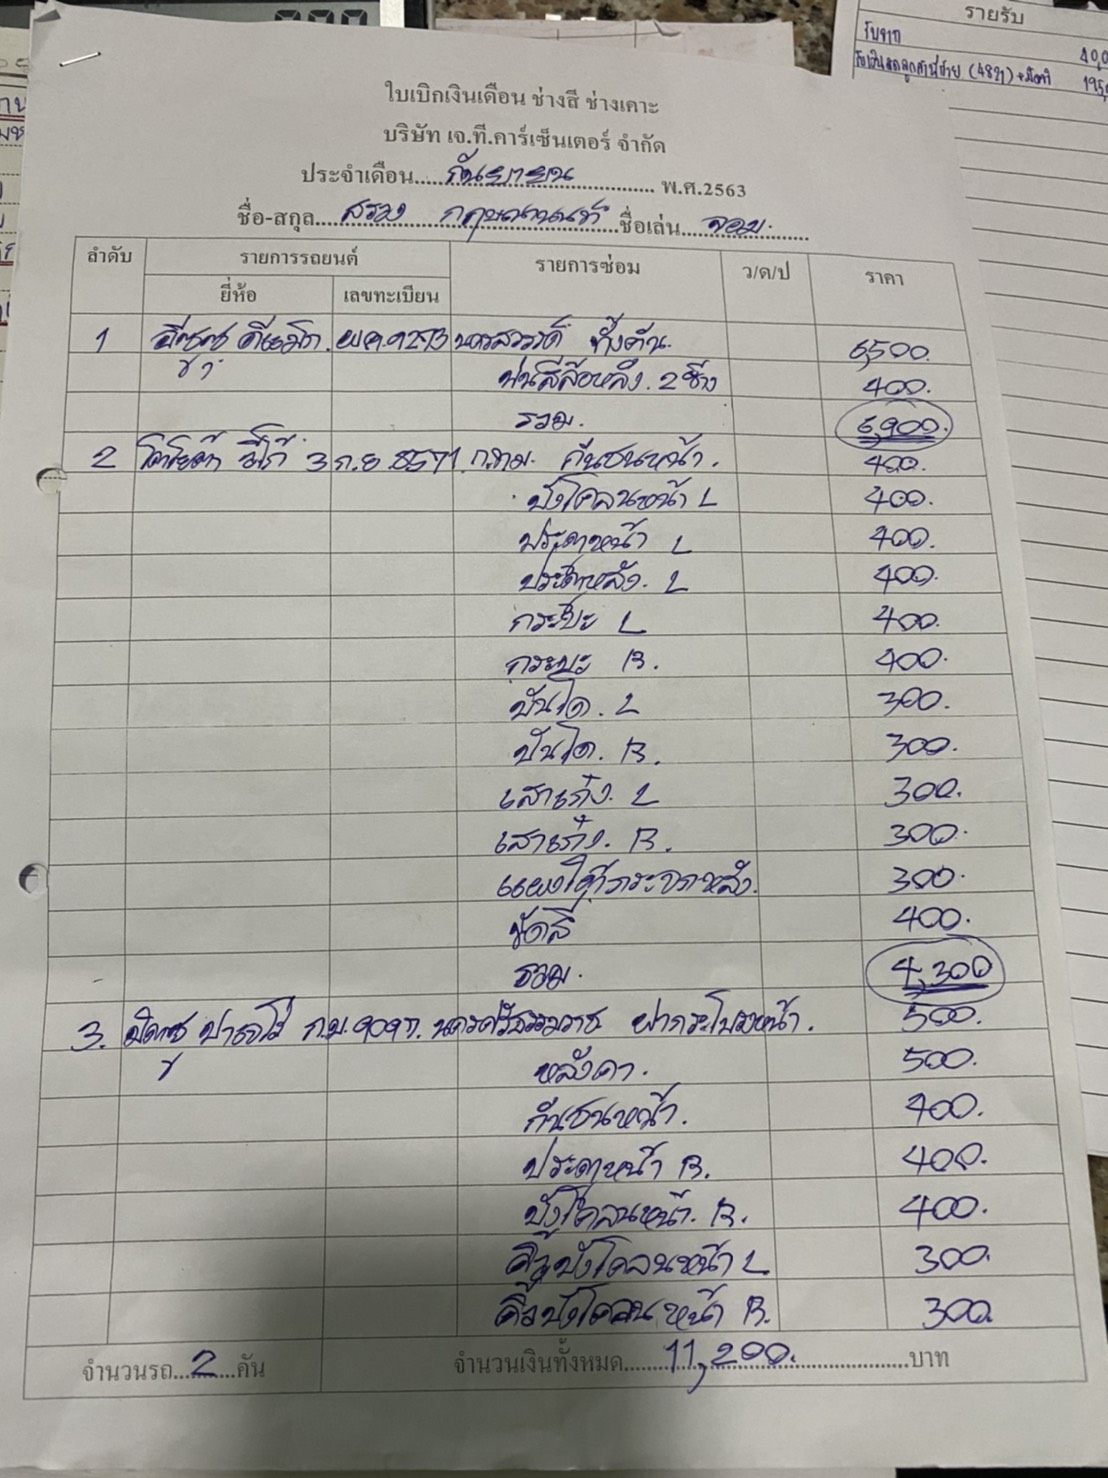 รายรับ
ใบเบิกเงินเดือน ช่างสี ช่างเคาะ
บริษัท เจ.ที.คาร์เซ็นเตอร์ จำกัด
ประจำเดือน.....กันยายน..... พ.ศ.2563
ชื่อ-สกุล...กฤษณานนท์...ชื่อเล่น...จอม.
ลำดับ รายการรถยนต์ รายการซ่อม ว/ด/ป ราคา
ยี่ห้อ เลขทะเบียน
1 อีซูซุ ดีแมก นครสวรรค์ ทั้งคัน. 6,500.
พ่นสีล้อหลัง. 2 ข้าง 400.
รวม. 6,900.
2 โตโยต้า วีโก้ 3 ก.ย 8571. ก.ท.ม. กันชนหน้า. 400.
บังโคลนหน้า L 400.
ประตูหน้า L 400.
ประตูหลัง. L 400.
กระบะ L 400.
กระบะ R. 400.
บันได. L 300.
บันได. R. 300.
เสาเก๋ง. L 300.
เสาเก๋ง. R. 300.
แผงใต้กระจกหลัง. 300.
ขัดสี 400.
รวม. 4,300
3. มิตซู ปาเจโร่ นครศรีธรรมราช ฝากระโปรงหน้า. 500.
หลังคา. 500.
กันชนหน้า. 400.
ประตูหน้า R. 400.
บังโคลนหน้า. R. 400.
คิ้วบังโคลนหน้า L 300.
คิ้วบังโคลนหน้า R. 300.
จำนวนรถ...2...คัน จำนวนเงินทั้งหมด.......11,200.......บาท